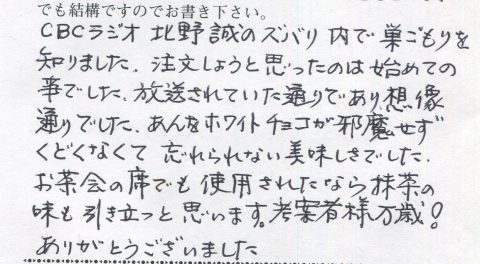 でも結構ですのでお書き下さい。
CBCラジオ 北野誠のズバリ内で巣ごもりを
知りました。注文しようと思ったのは始めての
事でした。放送されていた通りであり想像
通りでした。あんをホワイトチョコが邪魔せず
くどくなくて 忘れられない美味しさでした。
お茶会の席でも使用されたなら抹茶の
味も引き立つと思います。考案者様万歳!
ありがとうございました